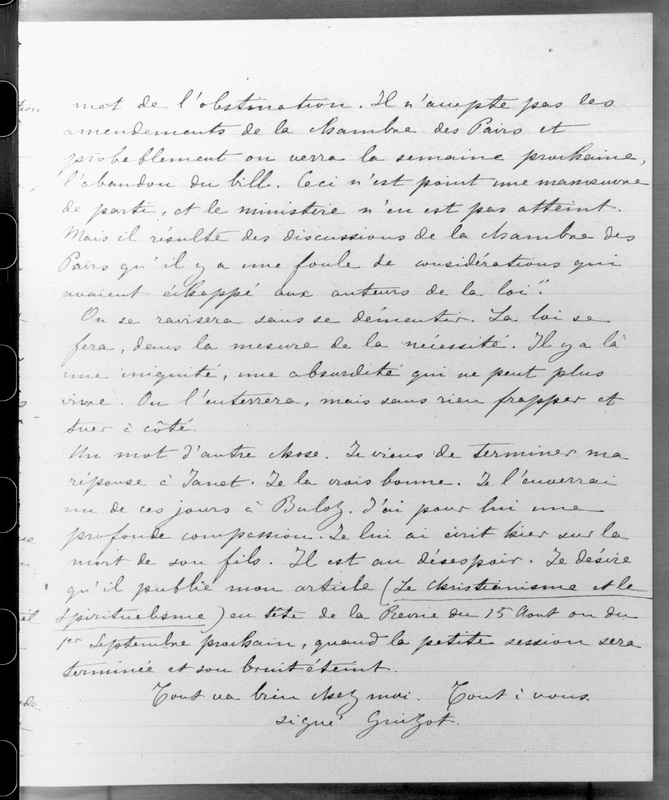 mot de l'obstination. Il n'accepte pas les
amendements de la chambre des Pairs et
probablement on verra la semaine prochaine,
l'abandon du bill. Ceci n'est point une manœuvre
de parti, et le ministère n'en est pas atteint.
Mais il résulte des discussions de la chambre des
Pairs qu'il y a une foule de considérations qui
avaient échappé aux auteurs de la loi".
On se ravisera sans se démentir. La loi se
fera, dans la mesure de la nécessité. Il y a là
une iniquité, une absurdité qui ne peut plus
vivre. On l'enterrera, mais sans rien frapper et
tuer à côté.
Un mot d'autre chose. Je viens de terminer ma
réponse à Janet. Je la crois bonne. Je l'enverrai
un de ces jours à Buloz. J'ai pour lui une
profonde compassion. Je lui ai écrit hier sur la
mort de son fils. Il est au désespoir. Je désire
qu'il publie mon article (Le Christianisme et le
Spiritualisme) en tête de la Revue du 15 Août ou du
1er Septembre prochain, quand la petite session sera
terminée et son bruit éteint.
Tout va bien chez moi. Tout à vous.
signé Guizot.